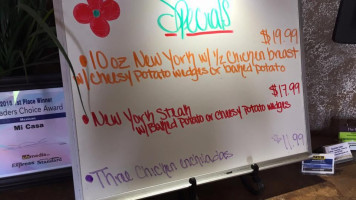 Specials
10 oz New York w/ ½ Chicken breast $19.99
w/ cheesy potato wedges or baked potato
New York Steak $17.99
w/ Baked potato or cheesy potato wedges
Three Chicken enchiladas $11.99
Place Winner
Choice Award
Mi Casa